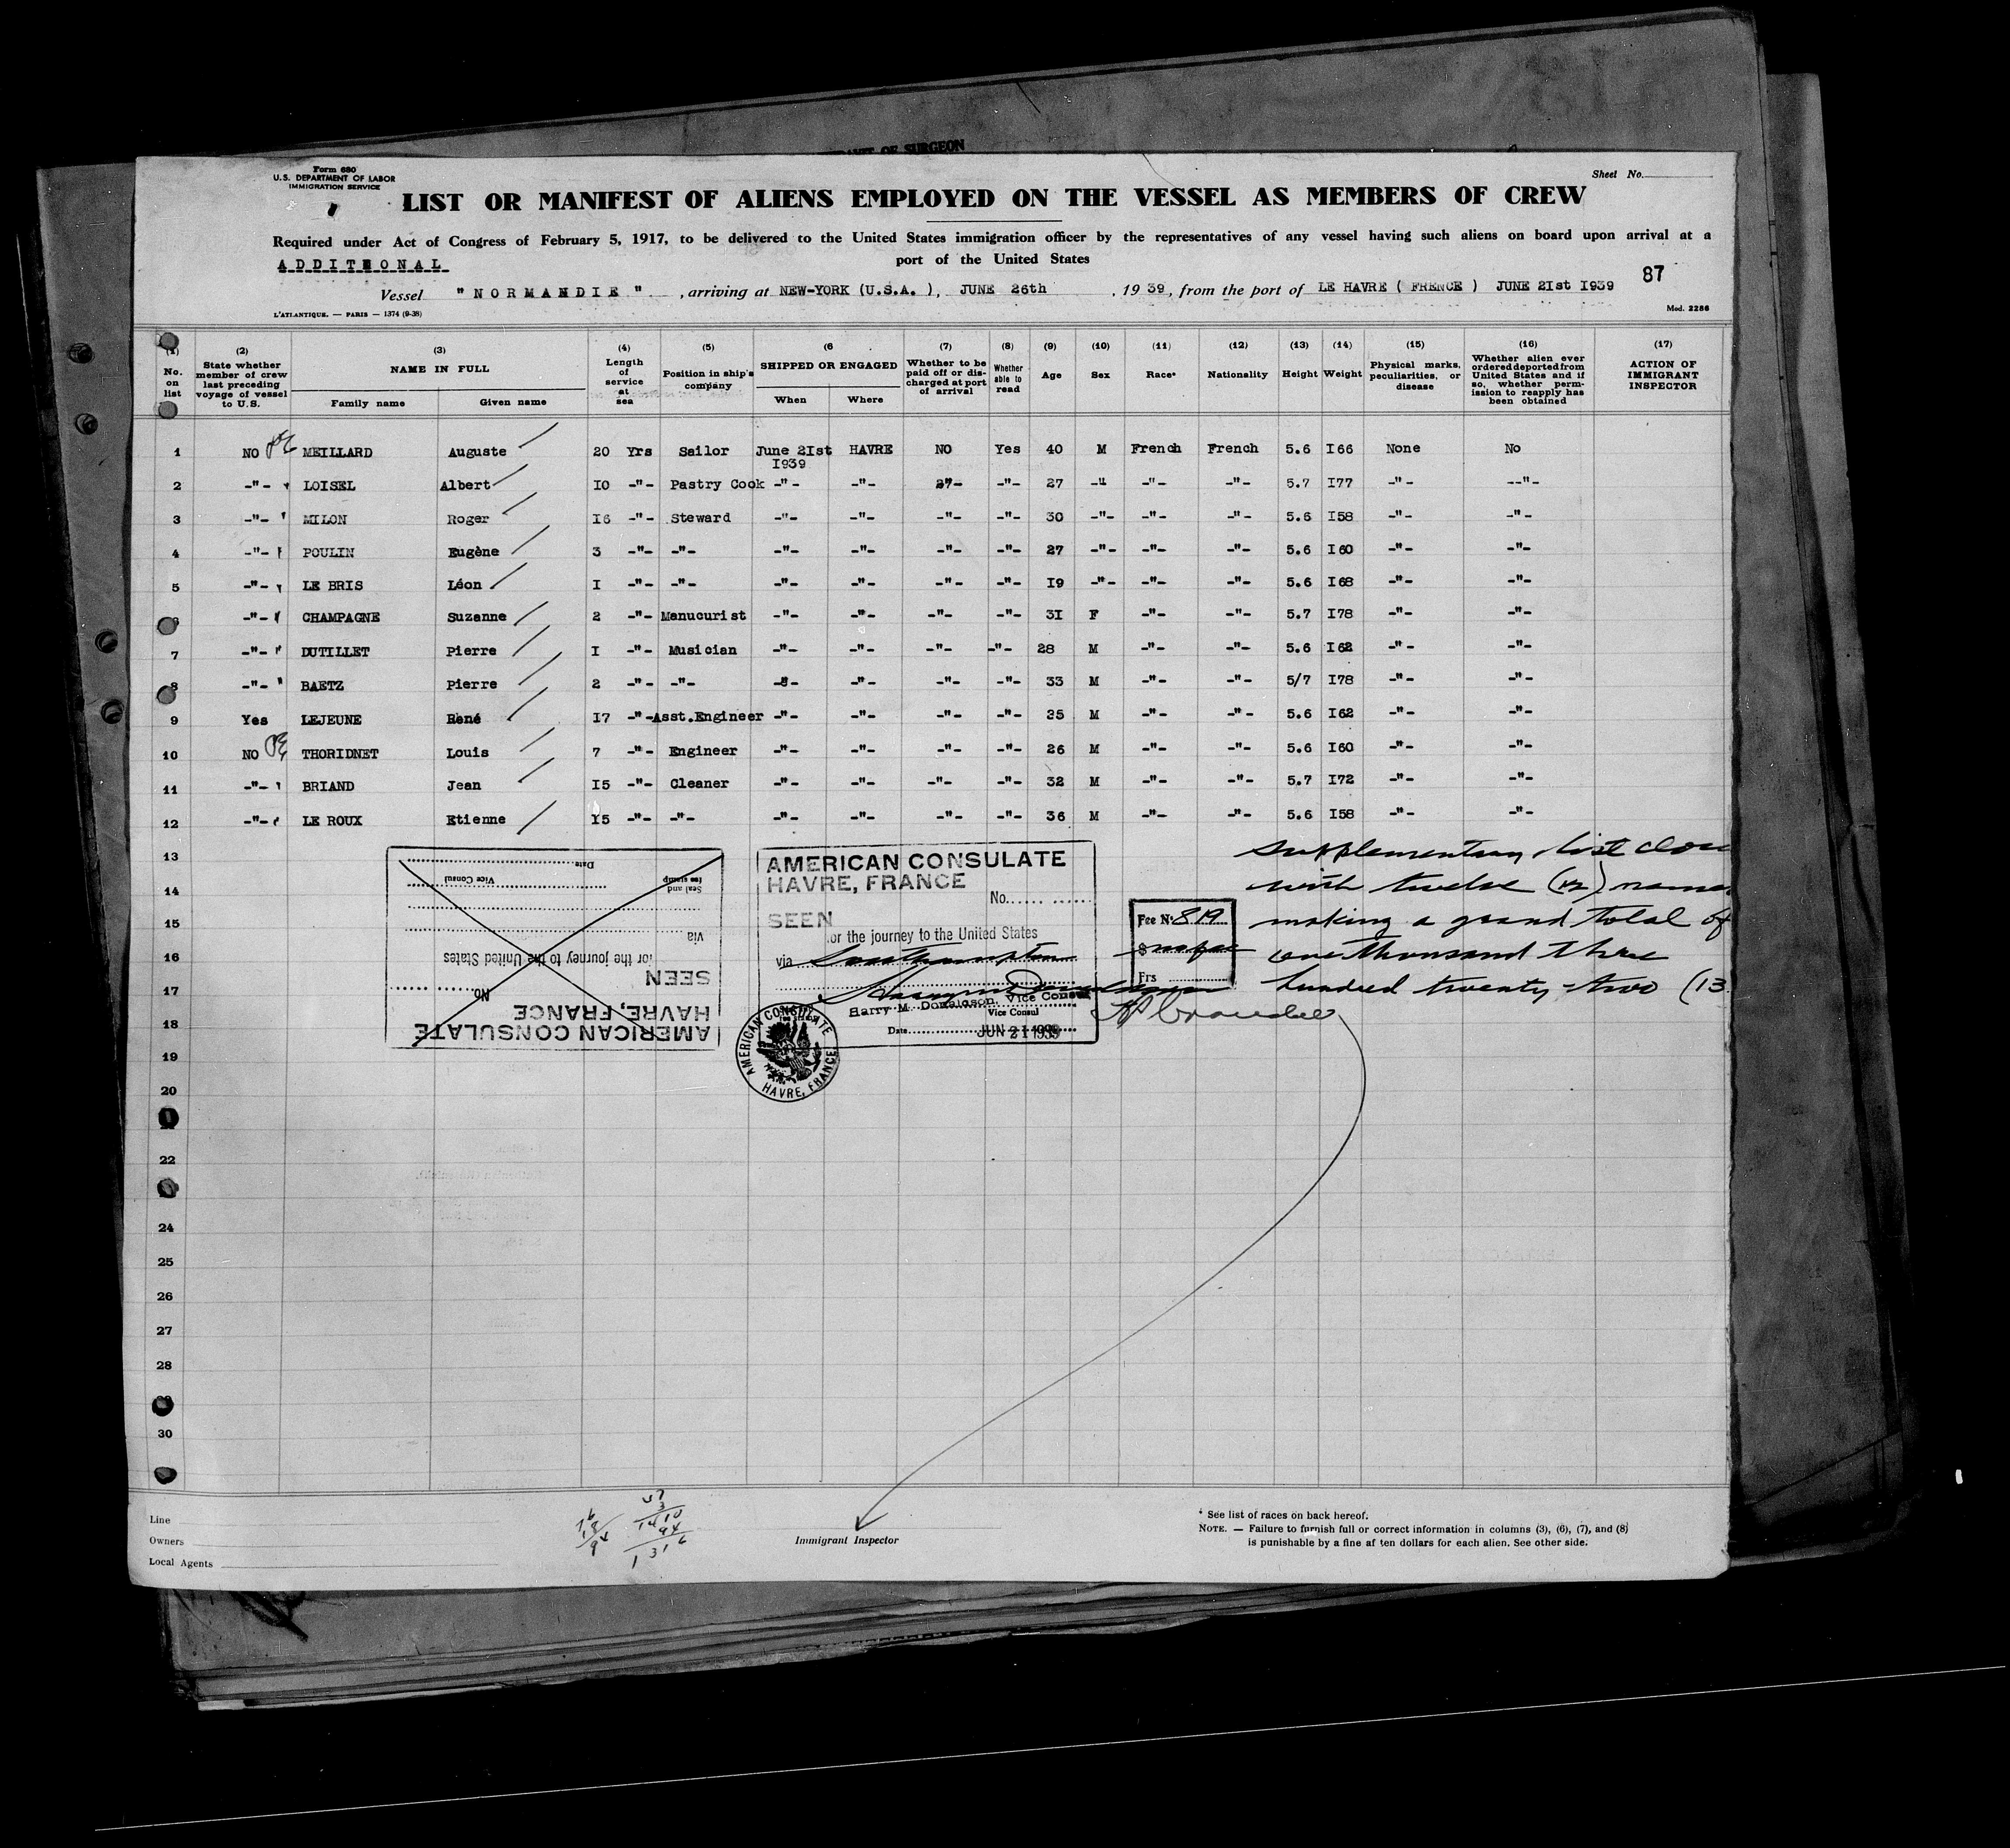 AVIT OF SURGEON
Form 680
U.S. DEPARTMENT OF LABOR
IMMIGRATION SERVICE
Sheet No.
LIST OR MANIFEST OF ALIENS EMPLOYED ON THE VESSEL AS MEMBERS OF CREW
Required under Act of Congress of February 5, 1917, to be delivered to the United States immigration officer by the representatives of any vessel having such aliens on board upon arrival at a
port of the United States
ADDITIONAL
87
Vessel "NORMANDIE", arriving at NEW-YORK (U.S.A. ), JUNE 26th, 1939, from the port of LE HAVRE ( FRENCE ) JUNE 21st I939
L'ATLANTIQUE. — PARIS — 1374 (9-38)
Mod. 2286
(1) No. on list
(2) State whether member of crew last preceding voyage of vessel to U.S.
(3) NAME IN FULL
Family name Given name
(4) Length of service at sea
(5) Position in ship's company
(6 SHIPPED OR ENGAGED
When Where
(7) Whether to be paid off or discharged at port of arrival
(8) Whether able to read
(9) Age
(10) Sex
(11) Race*
(12) Nationality
(13) Height
(14) Weight
(15) Physical marks, peculiarities, or disease
(16) Whether alien ever ordered deported from United States and if so, whether permission to reapply has been obtained
(17) ACTION OF IMMIGRANT INSPECTOR
1 NO MEILLARD Auguste 20 Yrs Sailor June 21st I939 HAVRE NO Yes 40 M French French 5.6 I66 None No
2 -"- LOISEL Albert I0 -"- Pastry Cook -"- -"- -"- -"- 27 -" -"- -"- 5.7 I77 -"- --"-
3 -"- MILON Roger I6 -"- Steward -"- -"- -"- -"- 30 -"- -"- -"- 5.6 I58 -"- -"-
4 -"- POULIN Eugène 3 -"- -"- -"- -"- -"- -"- 27 -"- -"- -"- 5.6 I60 -"- -"-
5 -"- LE BRIS Léon I -"- -"- -"- -"- -"- -"- I9 -"- -"- -"- 5.6 I68 -"- -"-
6 -"- CHAMPAGNE Suzanne 2 -"- Manucurist -"- -"- -"- -"- 3I F -"- -"- 5.7 I78 -"- -"-
7 -"- DUTILLET Pierre I -"- Musician -"- -"- -"- -"- 28 M -"- -"- 5.6 I62 -"- -"-
8 -"- BAETZ Pierre 2 -"- -"- -"- -"- -"- -"- 33 M -"- -"- 5/7 I78 -"- -"-
9 Yes LEJEUNE René I7 -"- Asst.Engineer -"- -"- -"- -"- 35 M -"- -"- 5.6 I62 -"- -"-
10 NO THORIDNET Louis 7 -"- Engineer -"- -"- -"- -"- 26 M -"- -"- 5.6 I60 -"- -"-
11 -"- BRIAND Jean I5 -"- Cleaner -"- -"- -"- -"- 32 M -"- -"- 5.7 I72 -"- -"-
12 -"- LE ROUX Etienne I5 -"- -"- -"- -"- -"- -"- 36 M -"- -"- 5.6 I58 -"- -"-
13
14
15
16
17
18
19
20
22
24
25
26
27
28
30
AMERICAN CONSULATE
HAVRE, FRANCE
No
SEEN
for the journey to the United States
via
Seal and
fee stamp
Vice Consul
Date
AMERICAN CONSULATE
HAVRE, FRANCE
No.
SEEN
for the journey to the United States
via Southampton
Harry M. Donaldson, Vice Consul
Vice Consul
Date JUN 21 1939
AMERICAN CONSULATE
HAVRE, FRANCE
Fee No 819
$ no fee
Frs
supplementary list clos
with twelve (12) names
making a grand total of
one thousand three
hundred twenty-two (13
Line
Owners
Local Agents
Immigrant Inspector
* See list of races on back hereof.
NOTE. — Failure to furnish full or correct information in columns (3), (6), (7), and (8)
is punishable by a fine af ten dollars for each alien. See other side.